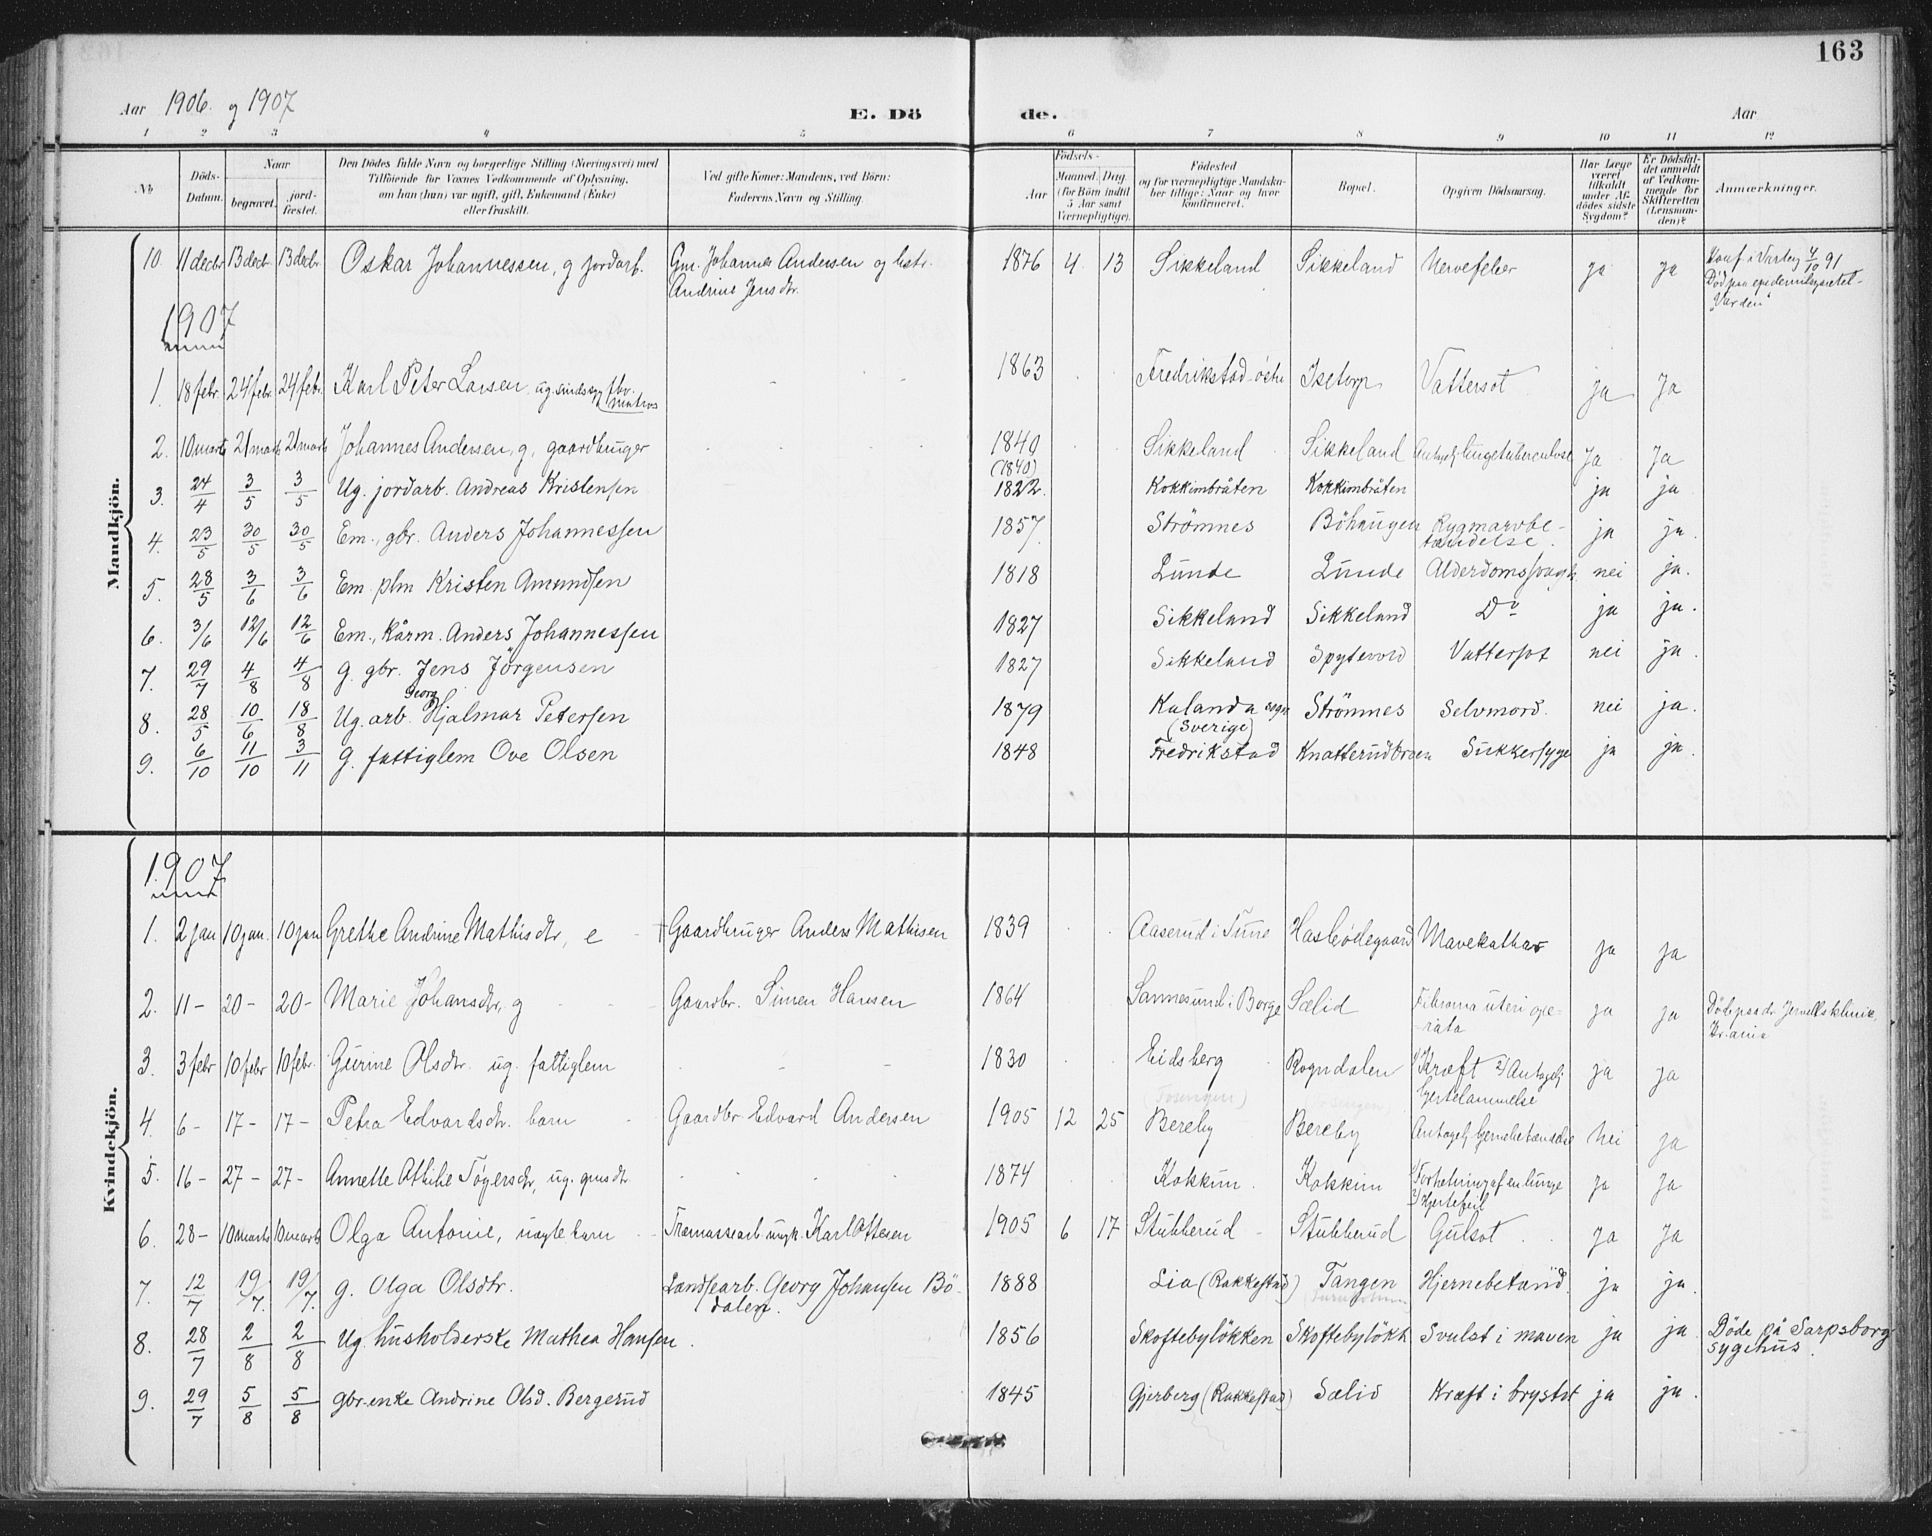 163
Aar 1906. og 1907 E. Dö de. Aar
1 2 3 4 5 6 7 8 9 10 11 12
No
Döds-Datum.
Naar
begravet.
jord-fæstet.
Den Dödes fulde Navn og borgerlige Stilling (Næringsvei) med
Tilföiende for Voxnes Vedkommende af Oplysning,
om han (hun) var ugift, gift, Enkemand (Enke)
eller fraskilt.
Ved gifte Koner: Mandens, ved Börn:
Faderens Navn og Stilling.
Födsels-
Aar
Maaned. Dag.
(for Börn indtil
5 Aar samt
Værnepligtige).
Födested
og for værnepligtige Mandska-
ber tillige: Naar og hvor
konfirmeret.
Bopæl.
Opgiven Dödsaarsag.
Har Læge
været
tilkaldt
under Af-
dödes sidste
Sygdom?
Er Dödsfal-
det anmeldt
af Vedkom-
mende for
Skifteretten
(Lensman-
den)?
Anmærkninger.
Mandkjön.
10. 11 decbr 13 decbr 13 decbr Oskar Johannessen, g jordarb. Gm. Johannes Andersen og hstr. Andrine Jensdtr. 1876 4 13 Sikkeland Sikkeland Nervefeber ja ja Konf i Varteig 4/10 91
Död paa epidemisygehuset
"Varden"
1907
1. 18 febr. 24 febr. 24 febr. Karl Peter Larsen, ug. sindssyg fhv. matros 1863 Fredrikstad östre Isetorp Vattersot ja Ja
2. 10 marts 21 marts 21 marts Johannes Andersen, g, gaardbruger 1840 Sikkeland Sikkeland Antagelig lungetuberculose Ja Ja
3. 24/4 3/5 3/5 Ug. jordarb. Andreas Kristensen (1840) 1822. Kokkimbråten Kokkimbråten ja ja
4. 23/5 30/5 30/5 Em., gbr. Anders Johannessen 1857. Strömnes Böhaugen Rygmarvbe-
tændelse. ja ja.
5. 28/5 3/6 3/6 Em. plm Kristen Amundsen 1818 Lunde Lunde Alderdomssvagh. nei ja.
6. 3/6 12/6 12/6 Em., kårm. Anders Johannessen 1827 Sikkeland Sikkeland Do ja ja.
7. 29/7 4/8 4/8 g. gbr. Jens Jörgensen 1827 Sikkeland Spytevold Vattersot nei ja.
8. 28/5 10/6 18/8 Ug. arb. Georg Hjalmar Petersen 1879 Kalanda sogn (Sverige) Strömnes Selvmord. nei ja.
9. 6/10 11/10 3/11 g. fattiglem Ove Olsen 1848 Fredrikstad Knatterudbråten Sukkersyge ja ja.
Kvindekjön.
1907
1. 2 jan 10 jan. 10 jan Grethe Andrine Mathisdtr, e + Gaardbruger Anders Mathisen 1839 Aaserud i Tune Haslebödegaard Mavekathar ja ja
2. 11 - 20 - 20 - Marie Johansdtr, g Gaardbr. Simen Hansen 1864 Sannesund i Borge Sælid Fibroma uteri ope-
rata ja ja Döde paa dr. Jervells klinik,
Kr.ania
3. 3 febr 10 febr 10 febr. Gurine Olsdtr. ug. fattiglem 1830 Eidsberg Rogndalen 1) Kræft 2) Antagelig
hjertelammelse ja ja
4. 6 - 17 - 17 - Petra Edvardsdtr. barn Gaardbr. Edvard Andersen 1905 12 25 (Tosengen) Bereby Bereby Antagelig hjernebetændelse Nei ja
5. 16 - 27 - 27 - Annette Othilie Tögersdtr, ug. gmsdtr. 1874 Kokkim. Kokkim 1) Fortætning af en lunge
2) Hjertefeil ja Ja
6. 28 - 10 marts 10 marts Olga Antonie, uægte barn Træmassearb. ungk. Karl Ottesen 1905 6 17 Stubberud Stubberud Gulsot ja Ja
7. 12/7 19/7. 19/7. g. Olga Olsdtr. Landsearb. Georg Johansen Bö-
dalen. 1888 Lia (Rakkestad) Tangen Hjernebetænd. ja ja.
8. 28/7 2/8 2/8 Ug. husholderske Mathea Hansen. 1856 Skoftebylökken Skoftebylökk. Svulst i maven ja ja. Döde på Sarpsborg
sygehus.
9. 29/7 5/8 5/8 gbr-enke Andrine Olsd. Bergerud 1845 Gjerberg (Rakkestad) Sælid Kræft i brystet ja ja.